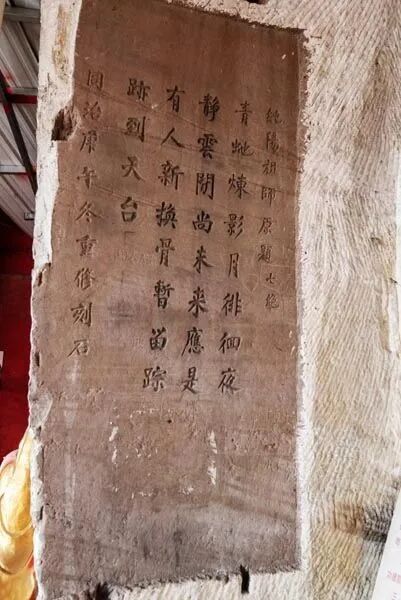 純陽祖師原題七絶
青虵煉影月徘徊夜
靜雲開尚未来應是
有人新換骨暫留踪
跡到天台
同治庚午冬重修刻石